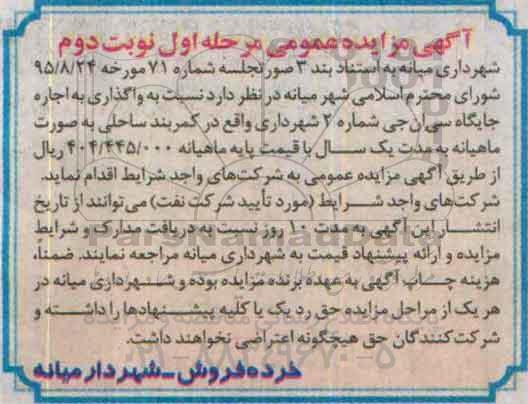 آگهی مزایده عمومی مرحله اول نوبت دوم
شهرداری میانه به استناد بند ۳ صورتجلسه شماره ۷۱ مورخه ۹۵/۸/۲۴
شورای محترم اسلامی شهر میانه در نظر دارد نسبت به واگذاری به اجاره
جایگاه سی‌ان‌جی شماره ۲ شهرداری واقع در کمربند ساحلی به صورت
ماهیانه به مدت یک سال با قیمت پایه ماهیانه ۴۰۴/۴۴۵/۰۰۰ ریال
از طریق آگهی مزایده عمومی به شرکت‌های واجد شرایط اقدام نماید.
شرکت‌های واجد شرایط (مورد تأیید شرکت نفت) می‌توانند از تاریخ
انتشار این آگهی به مدت ۱۰ روز نسبت به دریافت مدارک و شرایط
مزایده و ارائه پیشنهاد قیمت به شهرداری میانه مراجعه نمایند. ضمناً،
هزینه چاپ آگهی به عهده برنده مزایده بوده و شهرداری میانه در
هر یک از مراحل مزایده حق رد یک یا کلیه پیشنهادها را داشته و
شرکت‌کنندگان حق هیچگونه اعتراضی نخواهند داشت.
خرده‌فروش - شهردار میانه
ParsNamadData
۰۲۱-۸۸۳۴۹۶۷۰-۵